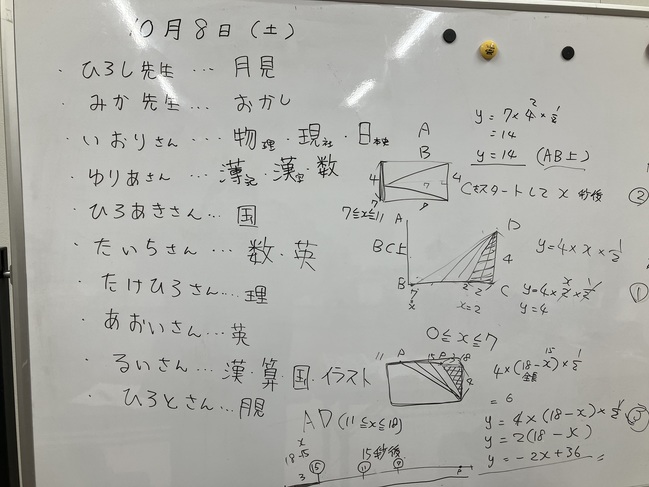 10月8日(土)
・ひろし先生 … 月見
・みか先生 … おかし
・いおりさん … 物理・現社・日本史
・ゆりあさん … 簿記・漢字・数
・ひろあきさん … 国
・たいちさん … 数・英
・たけひろさん … 理
・あおいさん … 英
・るいさん … 漢・算・国・イラスト
・ひろとさん … 月見
y = 7×4×1/2
2
= 14
y = 14 (AB上)
A
B
4
7
4
P
7
7≦x≦11
Cをスタートしてx秒後
②
A
BC上
B
D
4
C
x=2
y=4×x×1/2
y=4×2×1/2
x
y=4
①
0≦x≦7
11
P
15
18
4×(18-x)×1/2
15
全長
= 6
AD(11≦x≦18)
y = 4×(18-x)×1/2
③
y = 2(18-x)
y = -2x+36
15秒後
18-15
x
3
15
11
P